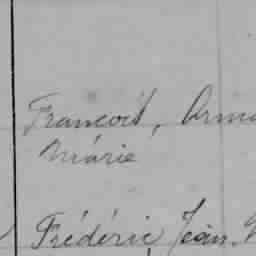 François, Arma
Marie
Frédéric, Jean